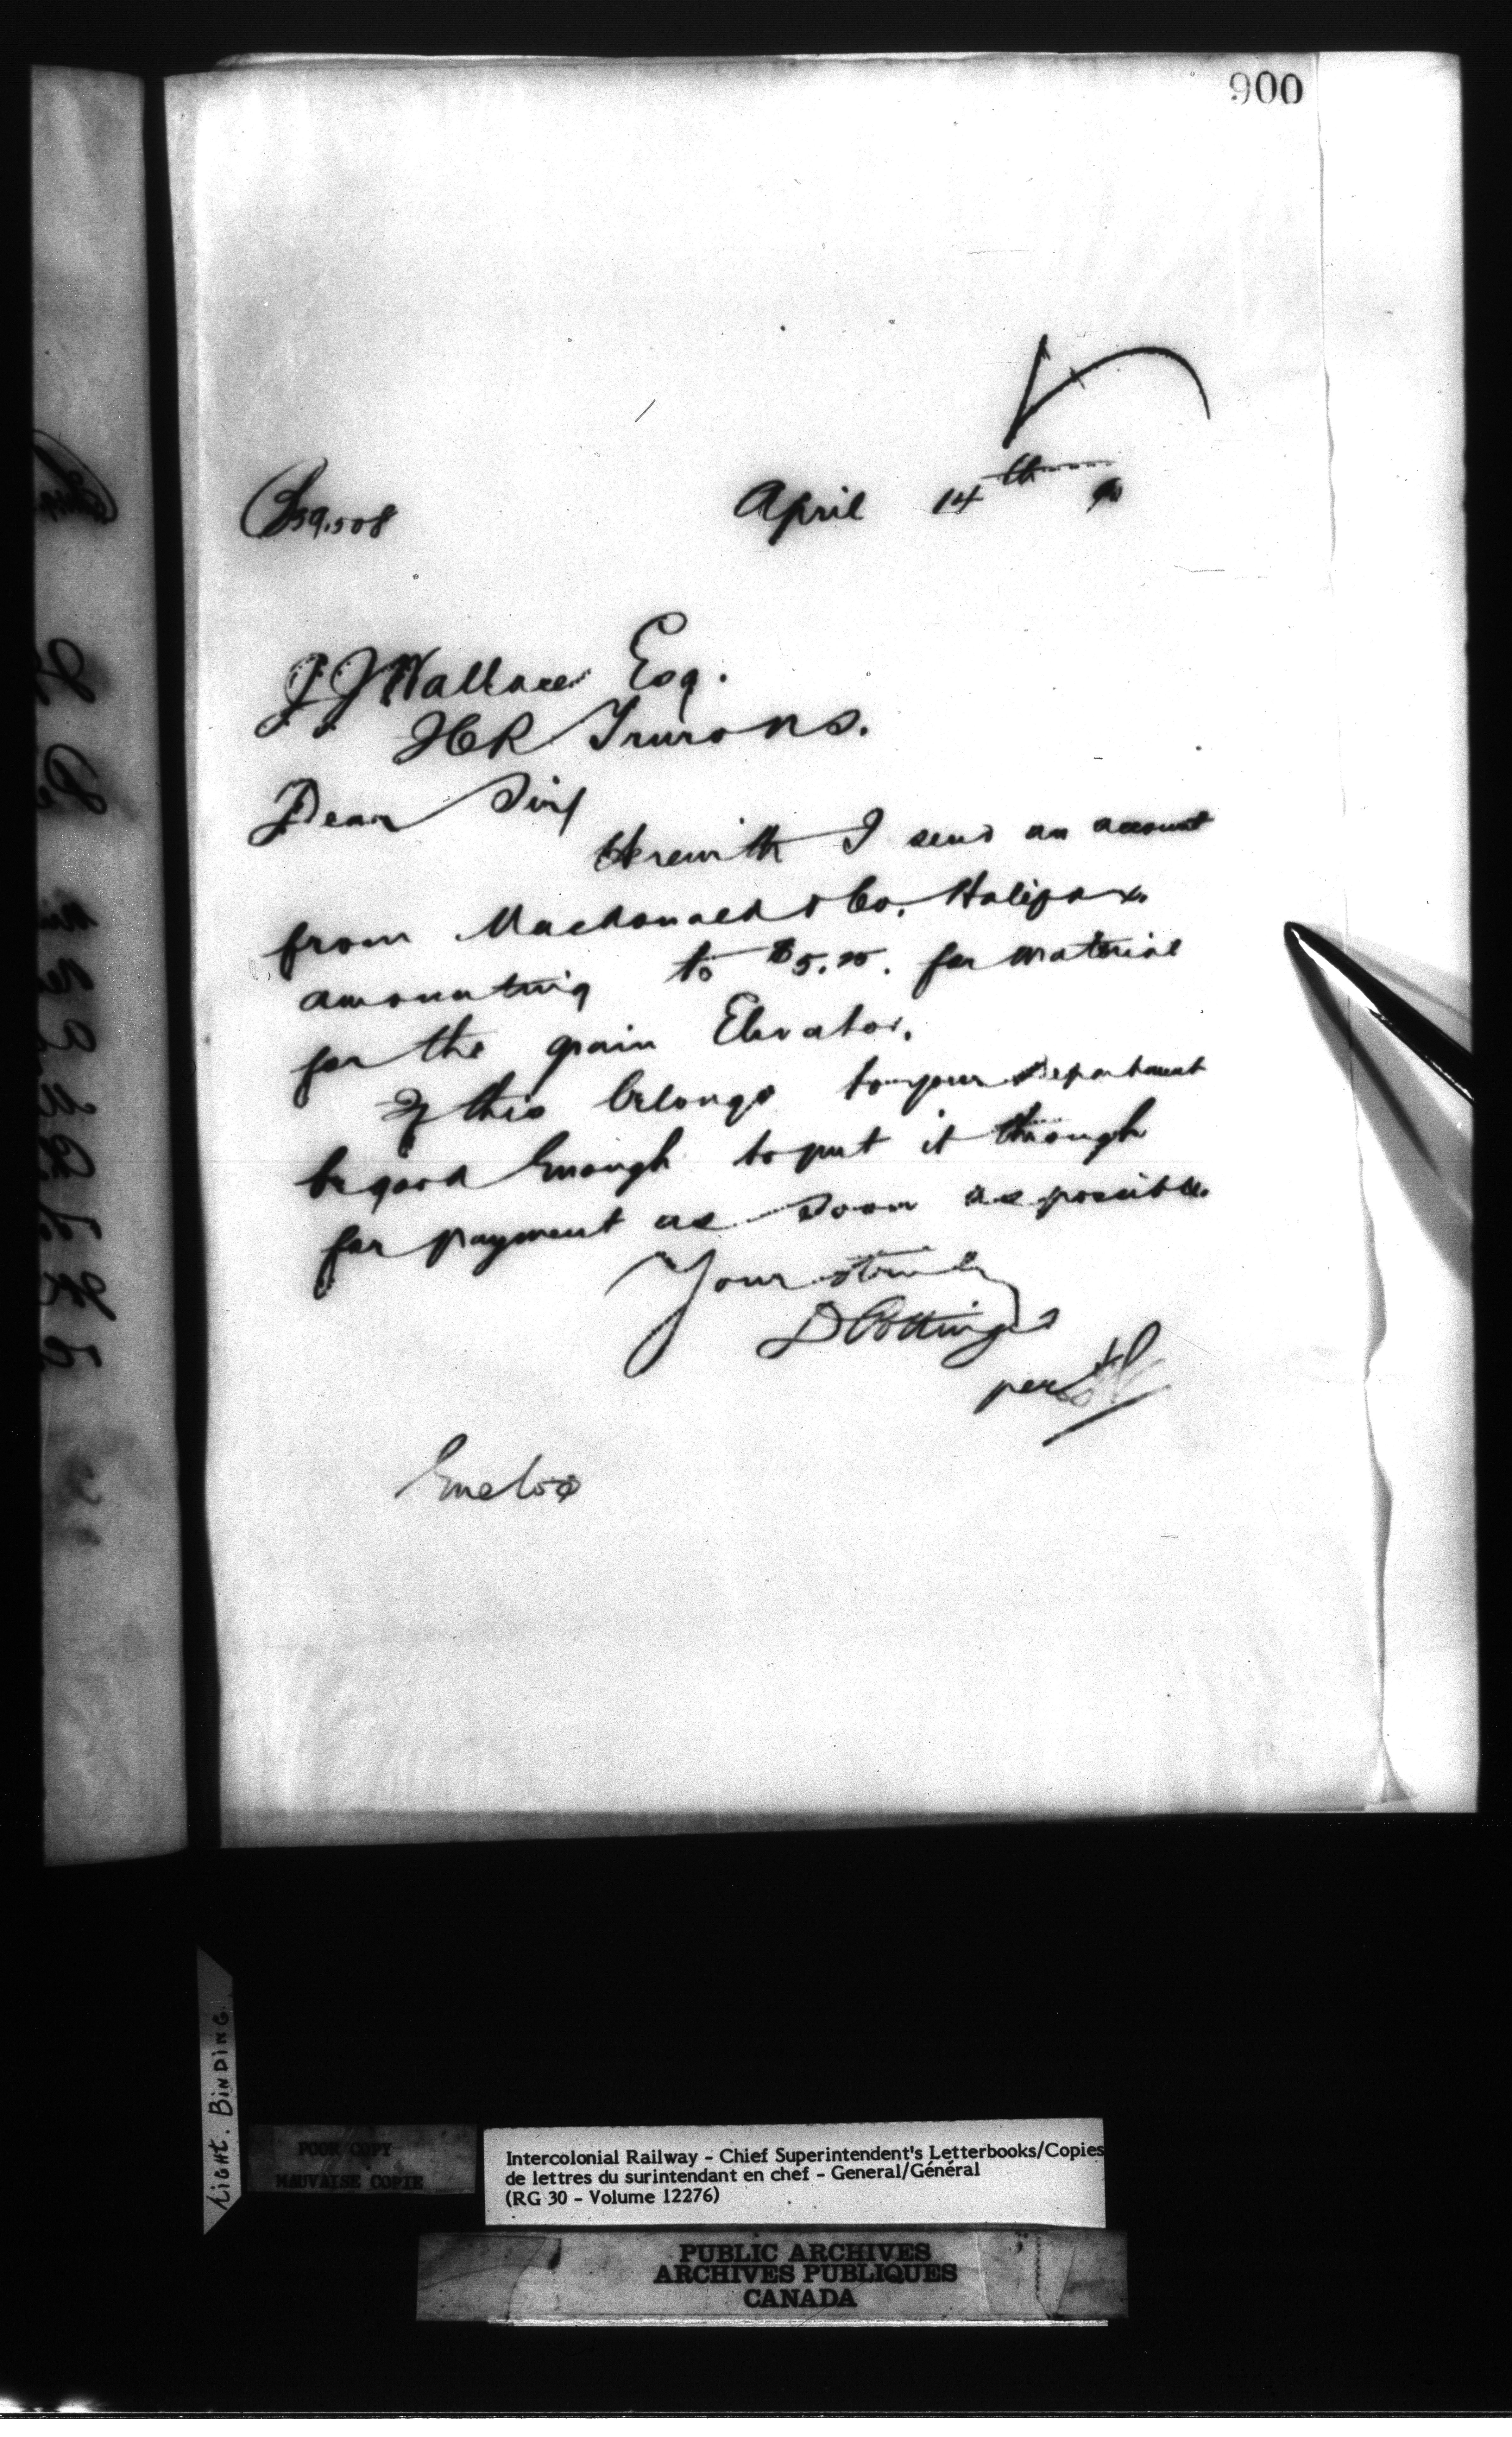 900
59.508
April 14th 90
J J Wallace Esq.
ICR Truro NS.
Dear Sir/
Herewith I send an account
from Macdonald & Co. Halifax
amounting to $5.25. for material
for the grain Elevator.
If this belongs to your department
be good Enough to put it through
for payment as soon as possible.
Yours truly
D Pottinger
per
Enclos
LIGHT. BINDING.
POOR COPY
MAUVAISE COPIE
Intercolonial Railway - Chief Superintendent's Letterbooks/Copies
de lettres du surintendant en chef - General/Général
(RG 30 - Volume 12276)
PUBLIC ARCHIVES
ARCHIVES PUBLIQUES
CANADA